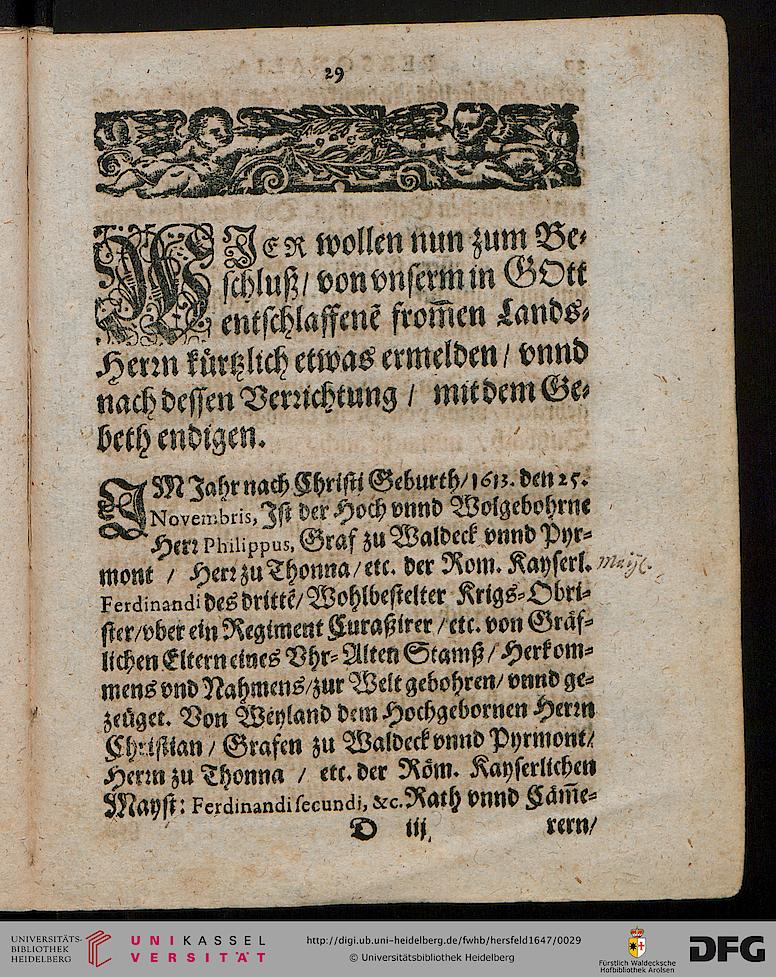 29
WJER wollen nun zum Be-
schluß / von vnserm in GOtt
entschlaffenē from̄en Lands-
Herrn kürtzlich etwas ermelden / vnnd
nach dessen Verrichtung / mit dem Ge-
beth endigen.
IM Jahr nach Christi Geburth / 1613. den 25.
Novembris, Ist der Hoch vnnd Wolgebohrne
Herr Philippus, Graf zu Waldeck vnnd Pyr-
mont / Herr zu Thonna / etc. der Rom. Kayserl. Mayt.
Ferdinandi des drittē / Wohlbestelter Krigs-Obri-
ster / vber ein Regiment Curaßirer / etc. von Gräf-
lichen Eltern eines Vhr-Alten Stamß / Herkom-
mens vnd Nahmens / zur Welt gebohren / vnnd ge-
zeüget. Von Weyland dem Hochgebornen Herrn
Christian / Grafen zu Waldeck vnnd Pyrmont /
Herrn zu Thonna / etc. der Röm. Kayserlichen
Mayst: Ferdinandi secundi, &c. Rath vnnd Cäm̄e-
D iij rern /
UNIVERSITÄTS-
BIBLIOTHEK
HEIDELBERG
UNIKASSEL
VERSITÄT
http://digi.ub.uni-heidelberg.de/fwhb/hersfeld1647/0029
© Universitätsbibliothek Heidelberg
Fürstlich Waldecksche
Hofbibliothek Arolsen
DFG